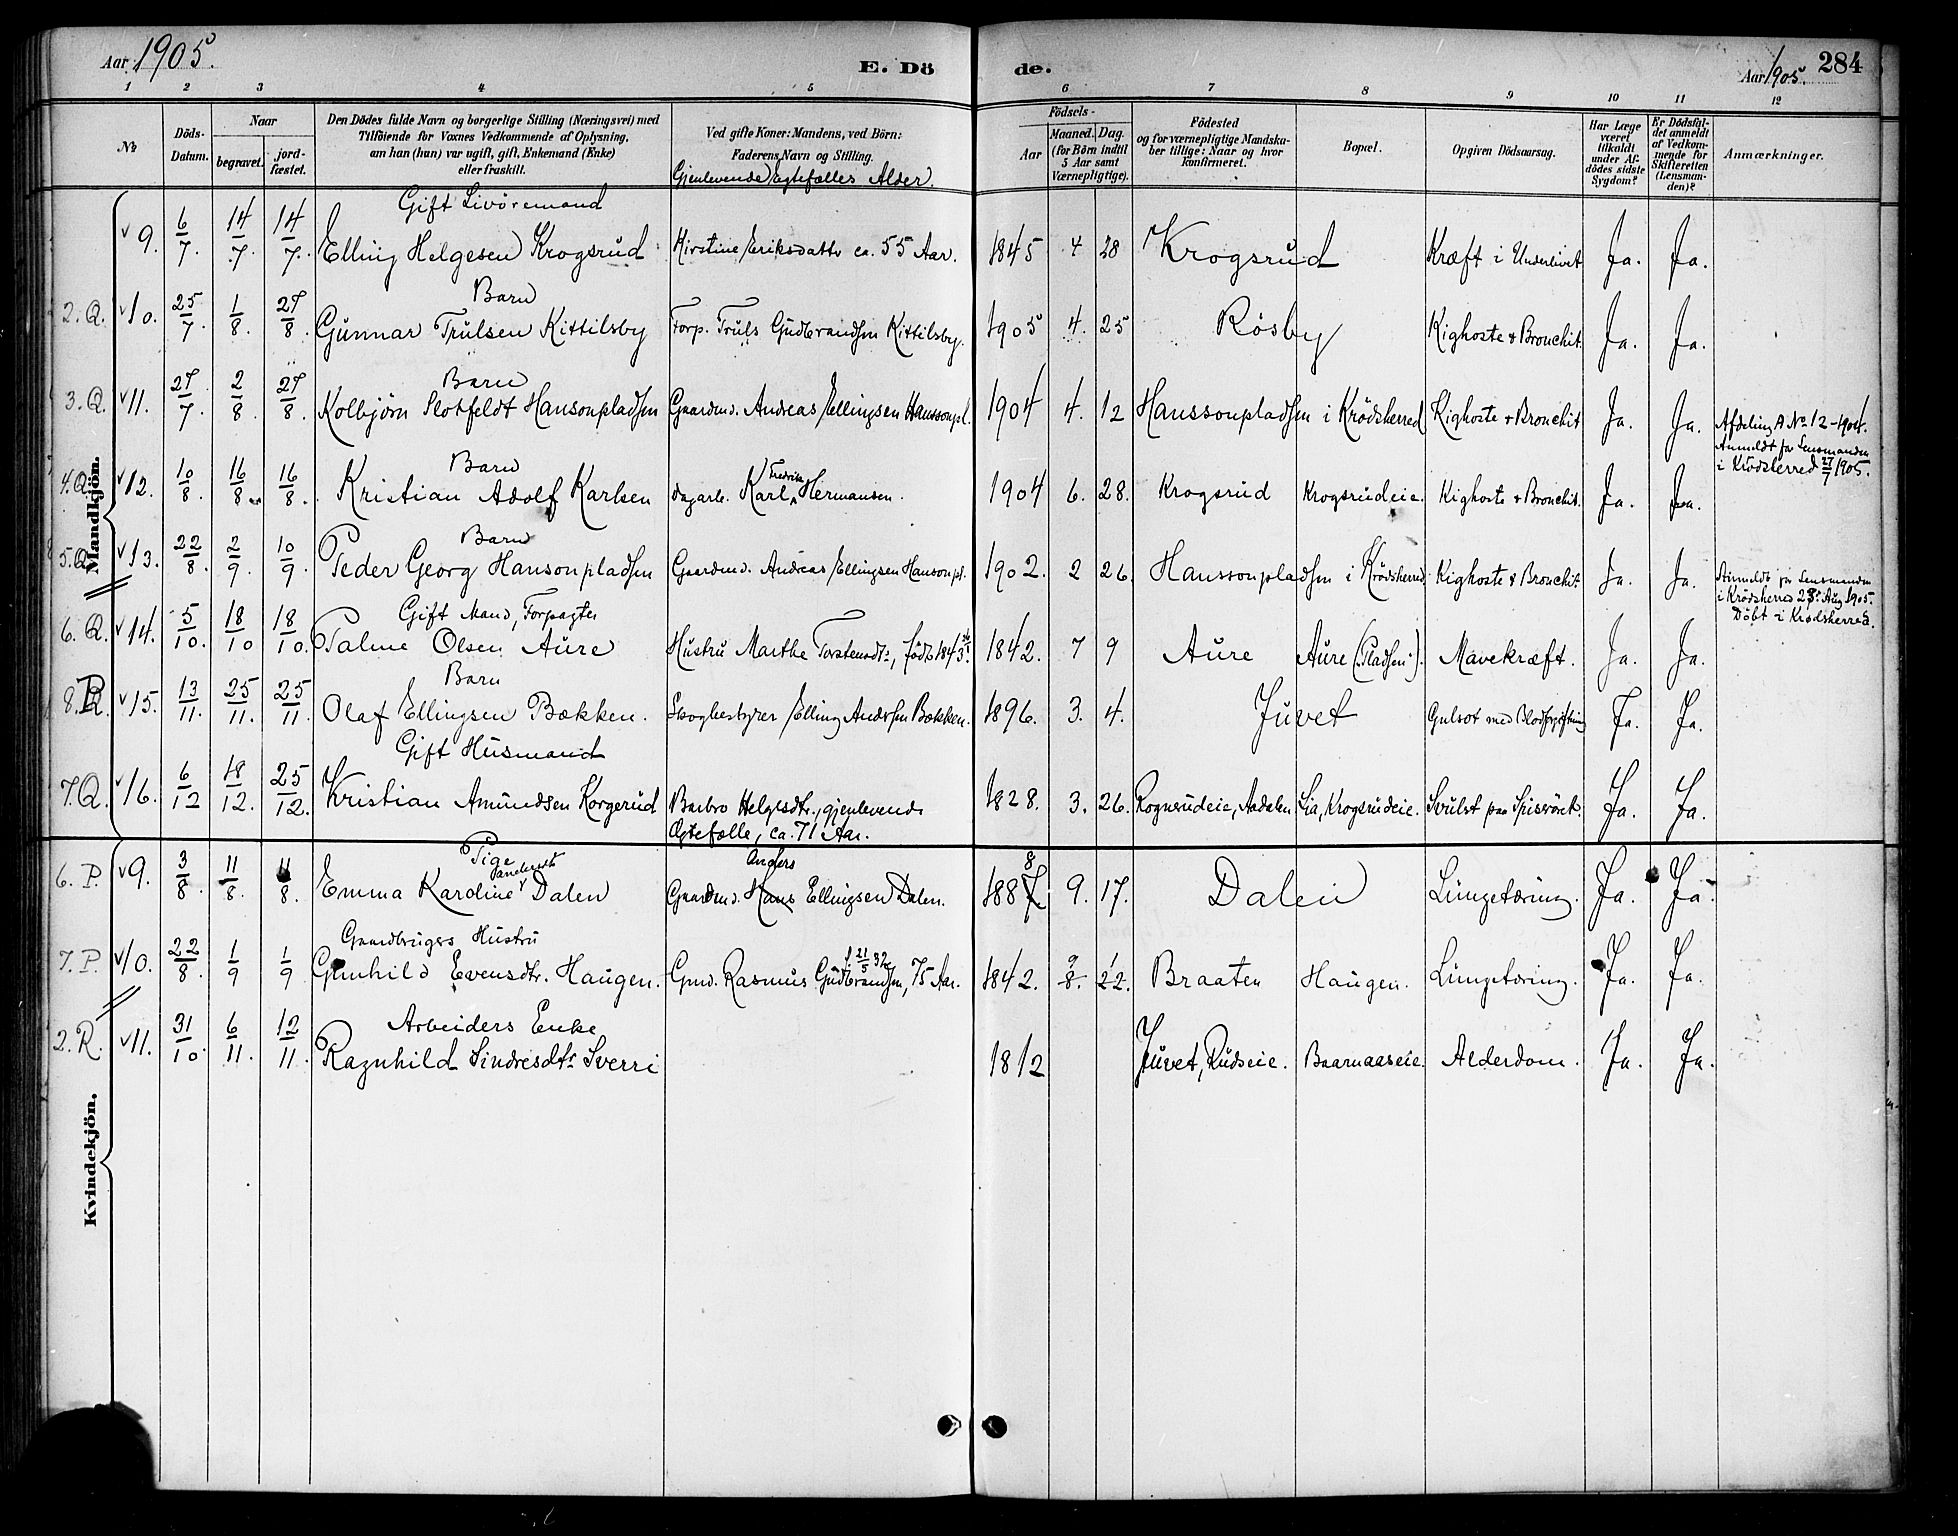 Aar 1905.
E. Dö
de.
Aar 1905.
284
1 2 3 4 5 6 7 8 9 10 11 12
№
Döds-
Datum.
Naar
begravet.
jord-
fæstet.
Den Dödes fulde Navn og borgerlige Stilling (Næringsvei) med
Tilföiende for Voxnes Vedkommende af Oplysning,
om han (hun) var ugift, gift, Enkemand (Enke)
eller fraskilt.
Ved gifte Koner: Mandens, ved Börn:
Faderens Navn og Stilling.
Gjenlevende Ægtefælles Alder.
Födsels-
Aar
Maaned.
Dag.
(for Börn indtil
5 Aar samt
Værnepligtige).
Födested
og for værnepligtige Mandska-
ber tillige: Naar og hvor
konfirmeret.
Bopæl.
Opgiven Dödsaarsag.
Har Læge
været
tilkaldt
under Af-
dödes sidste
Sygdom?
Er Dödsfal-
det anmeldt
af Vedkom-
mende for
Skifteretten
(Lensman-
den)?
Anmærkninger.
Mandkjön.
Gift Livöremand
9. 6/7. 14/7. 14/7. Elling Helgesen Krogsrud Kirstine Eriksdatter ca. 55 Aar. 1845 4 28 Krogsrud Kræft i Underlivet Ja. Ja.
Barn
2. Q. 10. 25/7. 1/8. 27/8. Gunnar Trulsen Kittilsby Forp. Truls Gudbrandsen Kittilsby. 1905 4. 25 Rösby Kighoste & Bronchit. Ja. Ja.
Barn
3. Q. 11. 27/7. 2/8. 27/8. Kolbjörn Slotfeldt Hansonpladsen Gaardmd. Andreas Ellingsen Hanssonpl. 1904 4. 12 Hanssonpladsen i Krödsherred Kighoste & Bronchit Ja. Ja. Afdeling A No 12 - 1904.
Anmeldt for Lensmanden
i Krödsherred 27/7 1905.
Barn
4. Q. 12. 10/8. 16/8. 16/8. Kristian Adolf Karlsen dagarb. Karl Fredrik Hermansen. 1904 6. 28. Krogsrud Krogsrudeie. Kighoste & Bronchit. Ja. Ja.
Barn
5. Q. 13. 22/8. 2/9. 10/9. Peder Georg Hansonpladsen Gaardmd. Andreas Ellingsen Hansonpl. 1902. 2 26. Hanssonpladsen i Krödsherred. Kighoste & Bronchit. Ja. Ja. Anmeldt for Lensmanden
i Krödsherred 25. Aug 1905.
Döbt i Krødsherred.
Gift Mand, Forpagter
6. Q. 14. 5/10. 18/10 18/10. Palme Olsen Aure Hustru Marthe Torstensdtr., födt 1843 1842. 7 9 Aure Aure (Pladsen). Mavekræft. Ja. Ja.
Barn
8. R. 15. 13/11. 25/11. 25/11. Olaf Ellingsen Bækken. Skogbestyrer Elling Andersen Bækken. 1896. 3. 4. Juvet Gulsot med Blodforgiftning Ja. Ja.
Gift Husmand
7. Q. 16. 6/12 18/12. 25/12. Kristian Amundsen Korgerud Barbro Helgesdtr., gjenlevende
Ægtefælle, ca. 71 Aar. 1828. 3. 26. Rognsrudeie, Aadalen Lia, Krogsrudeie. Svulst paa Spiseröret. Ja. Ja.
Kvindekjön.
Pige
6. P. 9. 3/8. 11/8. 11/8. Emma Kardine Dalen Gaardmd. Hans Anders Ellingsen Dalen. 1887 8 9. 17. Dalen Lungetæring. Ja. Ja.
Gaardbrugers Hustru
7. P. 10. 22/8. 1/9 1/9 Gunhild Evensdtr. Haugen. Gmd. Rasmus Gudbrandsen, f. 21/5 32 75 Aar. 1842. 8. 9 22. 1 Braaten Haugen. Lungetæring. Ja. Ja.
Arbeiders Enke
2. R. 11. 31/10. 6/11. 12/11. Ragnhild Sindresdtr. Sverri 1812 Juvet, Rudseie. Baarnaaseie. Alderdom. Ja. Ja.